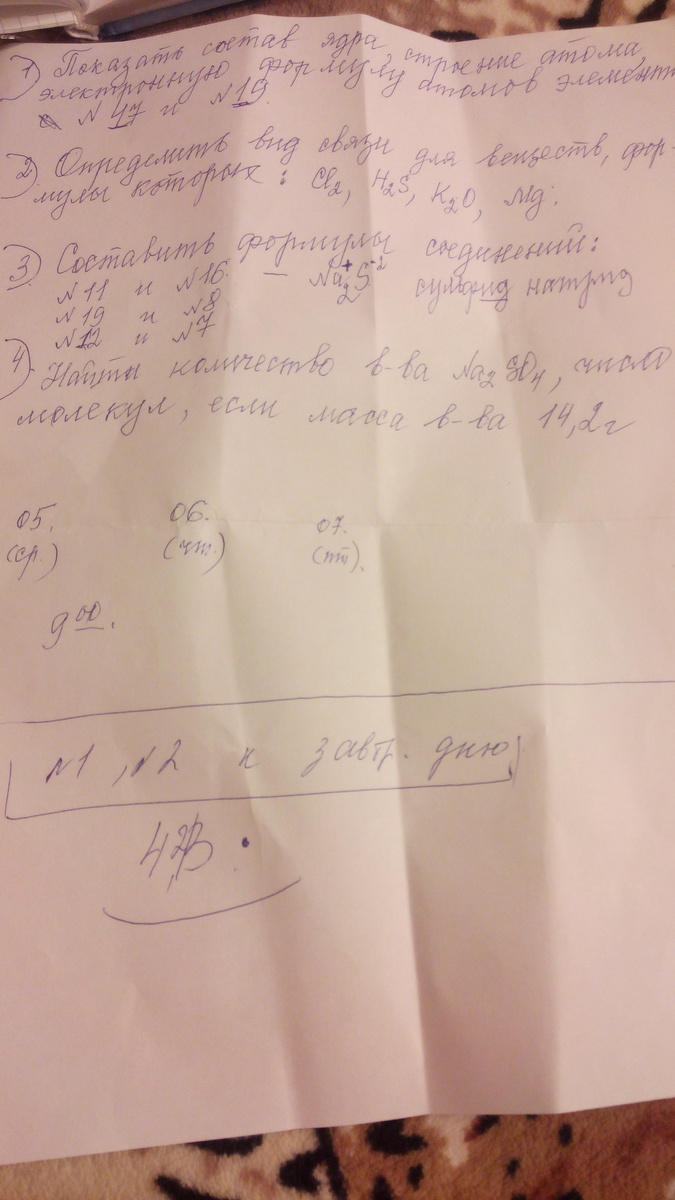 1) Показать состав ядра, строение атома,
электронную формулу атомов элементов
№ 47 и № 19.
2) Определить вид связи для веществ, фор-
мулы которых: Cl2, H2S, K2O, Mg.
3) Составить формулы соединений:
№ 11 и № 16. — Na2+S-2 сульфид натрия
№ 19 и № 8
№ 12 и № 7
4) Найти количество в-ва Na2SO4, число
молекул, если масса в-ва 14,2 г
05. 06. 07.
(ср.) (чт.) (пт).
9 00.
№1, №2 к завтр. дню